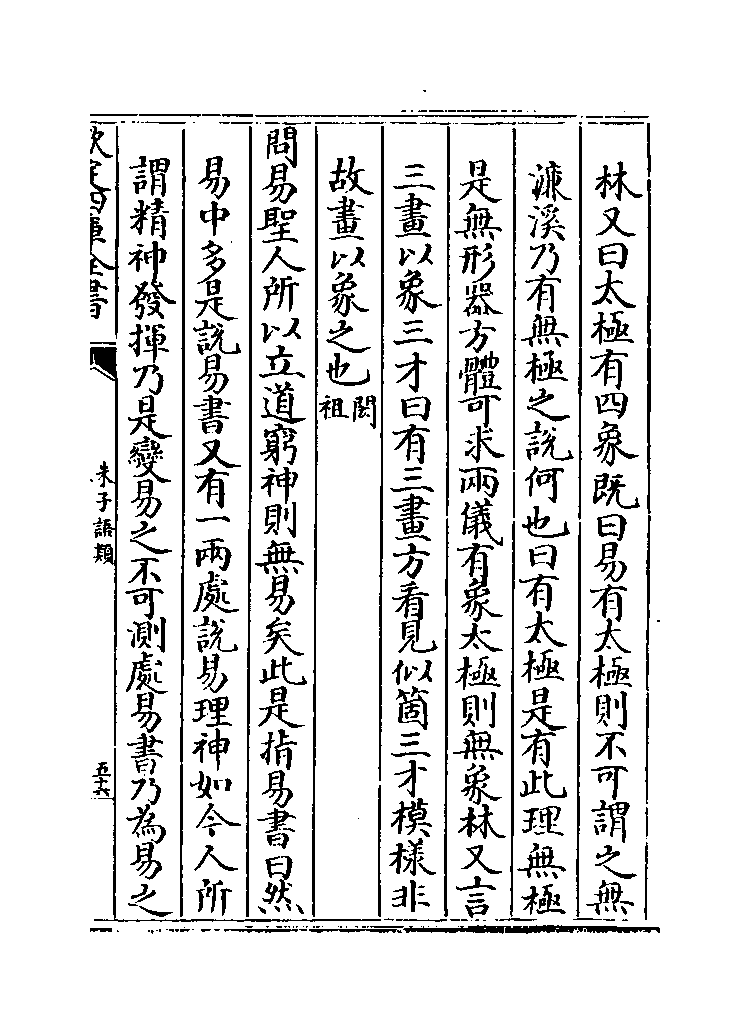 林又曰太極有四象既曰易有太極則不可謂之無
濂溪乃有無極之說何也曰有太極是有此理無極
是無形器方體可求兩儀有象太極則無象林又言
三畫以象三才曰有三畫方看見似箇三才模樣非
故畫以象之也閎祖
問易聖人所以立道窮神則無易矣此是指易書曰然
易中多是說易書又有一兩處說易理神如今人所
謂精神發揮乃是變易之不可測處易書乃為易之
欽定四庫全書
朱子語類
五十六